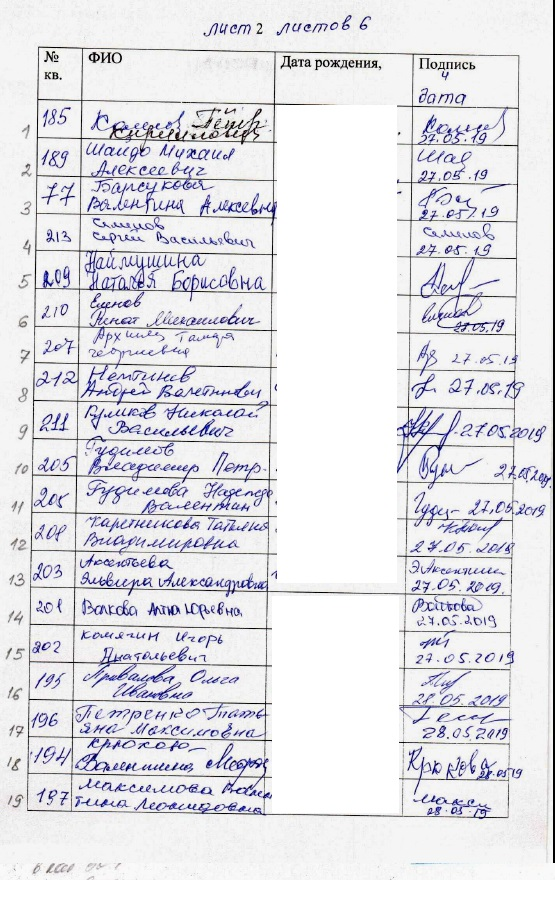 лист 2 листов 6
№ кв. ФИО Дата рождения, Подпись и дата
1 185 Петр Кириллович 27.05.19
2 189 Шандо Михаил Алексеевич Шан 27.05.19
3 77 Барсукова Валентина Алексевна 27.05.19
4 213 Семенов Сергей Васильевич Семенов 27.05.19
5 209 Наймушина Наталья Борисовна
6 210 Еленов Ринат 27.05.19
7 207 Тамара георгиевна 27.05.19
8 212 Немтинов Андрей Валентинович 27.05.19
9 211 Николай Васильевич 27.05.2019
10 205 Гудимов Владимир Петр. 27.05.2019
11 205 Гудимова Надежда Валентин 27.05.2019
12 208 Каретникова Татьяна Владимировна 27.05.2019
13 203 Аксентьева Эльвира Александровна Э.Аксентьева 27.05.2019.
14 201 Волкова Анна Юрьевна 27.05.2019
15 202 Комягин Игорь Анатольевич 27.05.2019
16 195 Привалова Ольга Ивановна 28.05.2019
17 196 Петренко Татьяна Максимовна 28.05.2019
18 194 Крюкова Валентина Крюкова 28.05.19
19 197 Максимова Валентина Леонидовна Макси 28.05.19